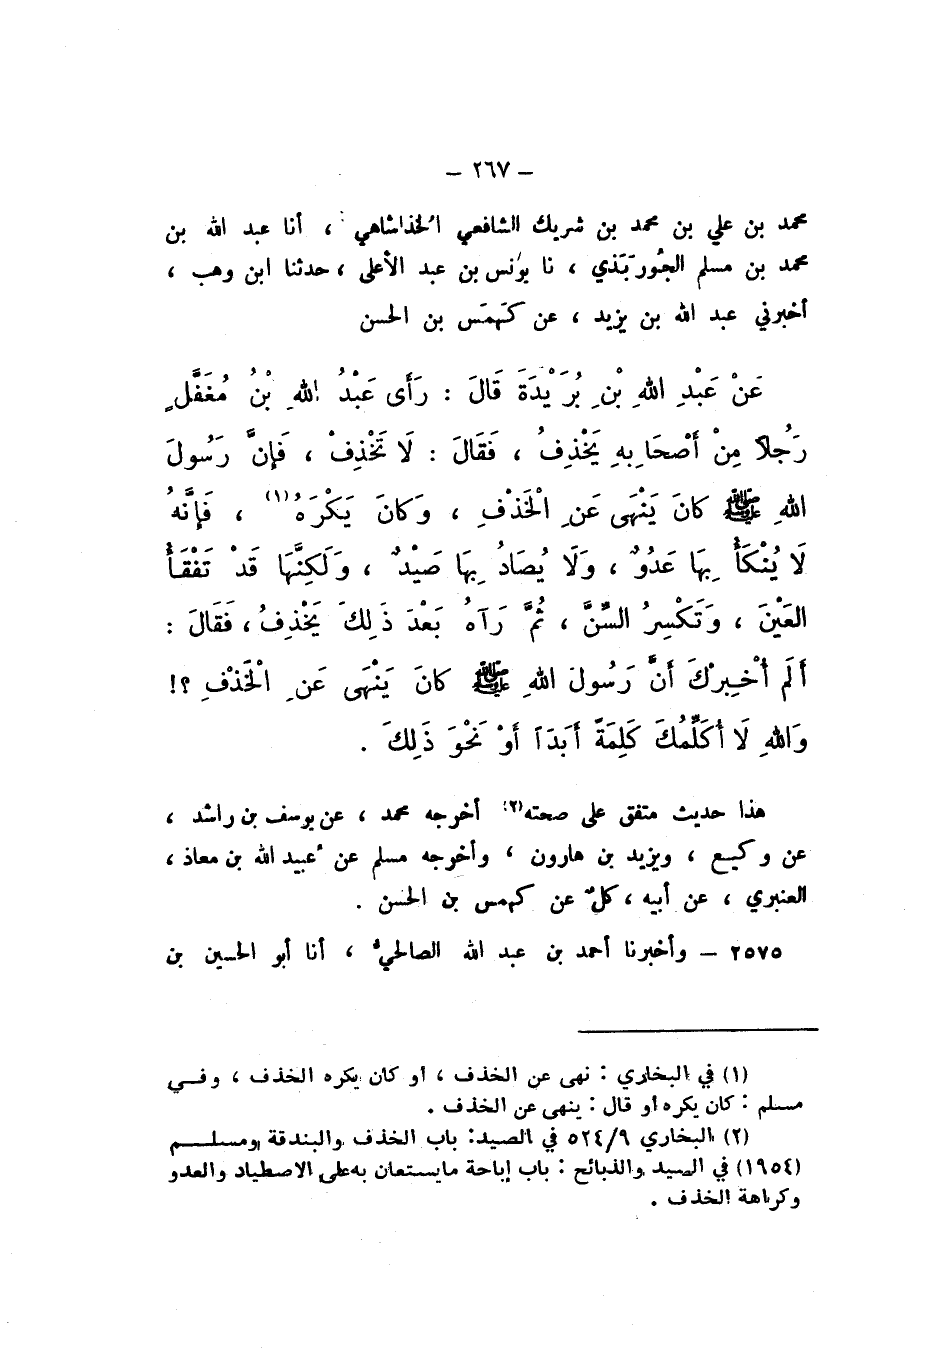 – ٢٦٧ –
محمد بن علي بن محمد بن شريك الشافعي الخذاشاهي ، أنا عبد الله بن
محمد بن مسلم الجُورَبَذي ، نا يونس بن عبد الأعلى ، حدثنا ابن وهب ،
أخبرني عبد الله بن يزيد ، عن كَهمَس بن الحسن
عَنْ عَبْدِ اللهِ بْنِ بُرَيْدَةَ قَالَ : رَأَى عَبْدُ اللهِ بْنُ مُغَفَّلٍ
رَجُلاً مِنْ أَصْحَابِهِ يَخْذِفُ ، فَقَالَ : لَا تَخْذِفْ ، فَإِنَّ رَسُولَ
اللهِ ﷺ كَانَ يَنْهَى عَنِ الْخَذْفِ ، وَكَانَ يَكْرَهُ(١) ، فَإِنَّهُ
لَا يُنْكَأُ بِهَا عَدُوٌّ ، وَلَا يُصَادُ بِهَا صَيْدٌ ، وَلَكِنَّهَا قَدْ تَفْقَأُ
العَيْنَ ، وَتَكْسِرُ السِّنَّ ، ثُمَّ رَآهُ بَعْدَ ذَلِكَ يَخْذِفُ ، فَقَالَ :
أَلَم أُخْبِرْكَ أَنَّ رَسُولَ اللهِ ﷺ كَانَ يَنْهَى عَنِ الْخَذْفِ ؟!
وَاللهِ لَا أُكَلِّمُكَ كَلِمَةً أَبَدَاً أَوْ نَحْوَ ذَلِكَ .
هذا حديث متفق على صحته(٢) أخرجه محمد ، عن يوسف بن راشد ،
عن وكيع ، ويزيد بن هارون ، وأخرجه مسلم عن عُبيد الله بن معاذ ،
العنبري ، عن أبيه ، كلٌ عن كهمس بن الحسن .
٢٥٧٥ – وأخبرنا أحمد بن عبد الله الصالحيُّ ، أنا أبو الحسين بن
(١) في البخاري : نهى عن الخذف ، أو كان يكره الخذف ، وفي
مسلم : كان يكره أو قال : ينهى عن الخذف .
(٢) البخاري ٥٢٤/٩ في الصيد : باب الخذف والبندقة ومسلم
(١٩٥٤) في الصيد والذبائح : باب إباحة ما يستعان به على الاصطياد والعدو
وكراهة الخذف .